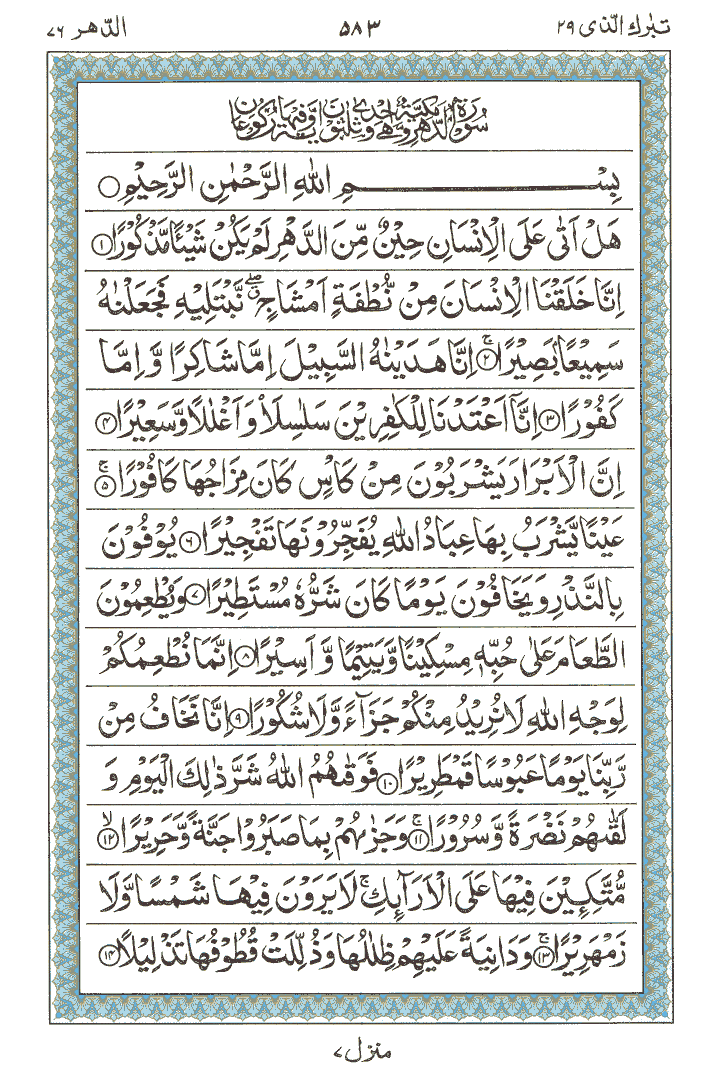 تبٰرك الّذی ۲۹
۵۸۳
الدّهر ۷۶
سُوْرَةُ الدَّهْرِ مَكِّيَّةٌ وَّهِيَ اِحْدٰى وَثَلٰثُوْنَ اٰيَةً وَّفِيْهَا رُكُوْعَانِ
بِسْمِ اللّٰهِ الرَّحْمٰنِ الرَّحِيْمِ ○
هَلْ اَتٰى عَلَى الْاِنْسَانِ حِيْنٌ مِّنَ الدَّهْرِ لَمْ يَكُنْ شَيْـًٔا مَّذْكُوْرًا ۝۱
اِنَّا خَلَقْنَا الْاِنْسَانَ مِنْ نُّطْفَةٍ اَمْشَاجٍ ۖ نَّبْتَلِيْهِ فَجَعَلْنٰهُ
سَمِيْعًۢا بَصِيْرًا ۚ۝۲ اِنَّا هَدَيْنٰهُ السَّبِيْلَ اِمَّا شَاكِرًا وَّ اِمَّا
كَفُوْرًا ۝۳ اِنَّاۤ اَعْتَدْنَا لِلْكٰفِرِيْنَ سَلٰسِلَا۟ وَ اَغْلٰلًا وَّ سَعِيْرًا ۝۴
اِنَّ الْاَبْرَارَ يَشْرَبُوْنَ مِنْ كَاْسٍ كَانَ مِزَاجُهَا كَافُوْرًا ۚ۝۵
عَيْنًا يَّشْرَبُ بِهَا عِبَادُ اللّٰهِ يُفَجِّرُوْنَهَا تَفْجِيْرًا ۝۶ يُوْفُوْنَ
بِالنَّذْرِ وَ يَخَافُوْنَ يَوْمًا كَانَ شَرُّهٗ مُسْتَطِيْرًا ۝۷ وَ يُطْعِمُوْنَ
الطَّعَامَ عَلٰى حُبِّهٖ مِسْكِيْنًا وَّ يَتِيْمًا وَّ اَسِيْرًا ۝۸ اِنَّمَا نُطْعِمُكُمْ
لِوَجْهِ اللّٰهِ لَا نُرِيْدُ مِنْكُمْ جَزَآءً وَّ لَا شُكُوْرًا ۝۹ اِنَّا نَخَافُ مِنْ
رَّبِّنَا يَوْمًا عَبُوْسًا قَمْطَرِيْرًا ۝۱۰ فَوَقٰىهُمُ اللّٰهُ شَرَّ ذٰلِكَ الْيَوْمِ وَ
لَقّٰىهُمْ نَضْرَةً وَّ سُرُوْرًا ۚ۝۱۱ وَ جَزٰىهُمْ بِمَا صَبَرُوْا جَنَّةً وَّ حَرِيْرًا ۙ۝۱۲
مُّتَّكِـِٕيْنَ فِيْهَا عَلَى الْاَرَآئِكِ ۚ لَا يَرَوْنَ فِيْهَا شَمْسًا وَّ لَا
زَمْهَرِيْرًا ۚ۝۱۳ وَ دَانِيَةً عَلَيْهِمْ ظِلٰلُهَا وَ ذُلِّلَتْ قُطُوْفُهَا تَذْلِيْلًا ۝۱۴
منزل ۷